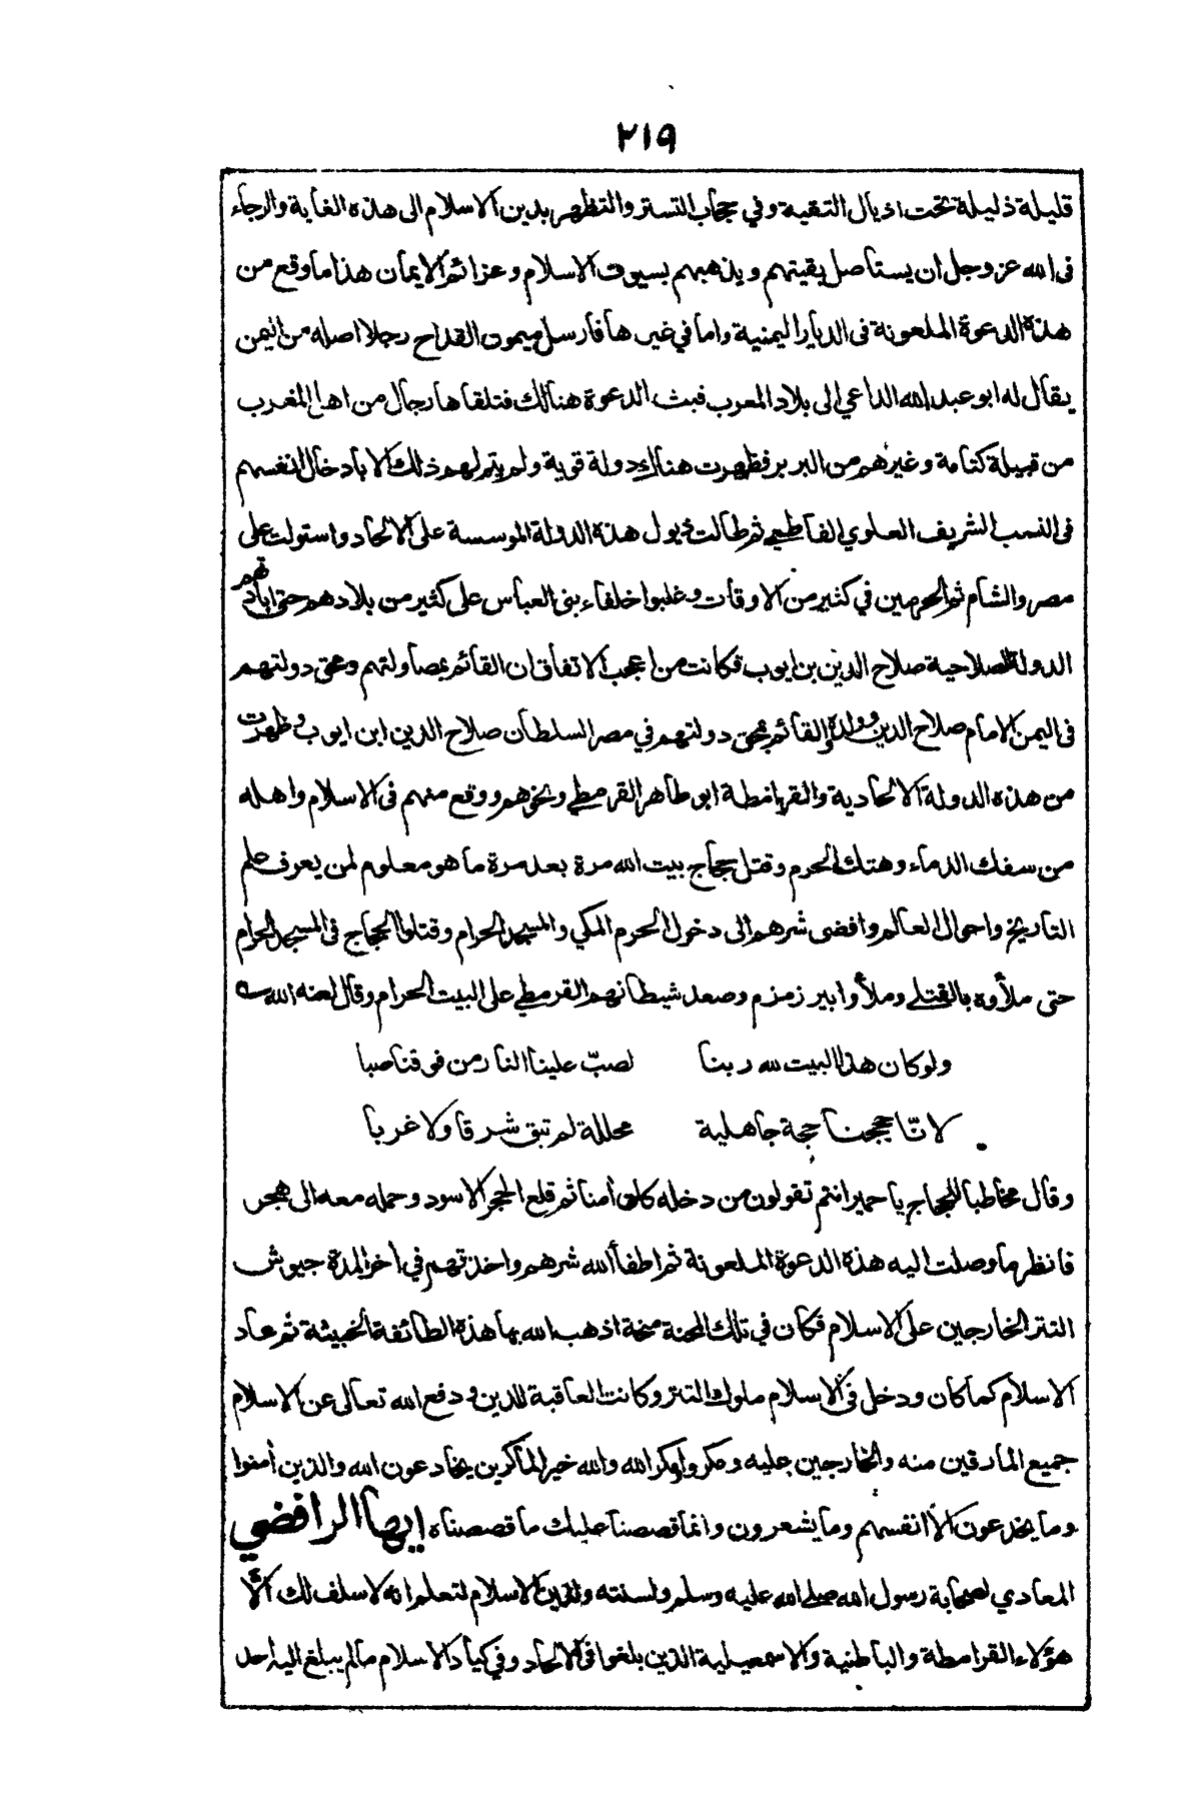 ٢١٩
قليلة ذليلة تحت اذيال التقية وفي حجاب التستر والتظهر بدين الاسلام الى هذه الغاية والرجاء
فى الله عز وجل ان يستأصل بقيتهم ويذهبهم بسيوف الاسلام وعزائم الايمان هذا ما وقع من
هذه الدعوة الملعونة فى الديار اليمنية واما في غيرها فارسل ميمون القداح رجلا اصله من اليمن
يقال له ابو عبد الله الداعي الى بلاد المغرب فبث الدعوة هنالك فتلقاها رجال من اهل المغرب
من قبيلة كتامة وغيرهم من البربر فظهرت هناك دولة قوية ولم يتم لهم ذلك الا بادخال انفسهم
فى النسب الشريف العلوي الفاطمي ثم طالت ذيول هذه الدولة الموسسة على الالحاد واستولت على
مصر والشام ثم الحرمين في كثير من الاوقات وغلبوا خلفاء بنى العباس على كثير من بلادهم حتى ابادتهم
الدولة الصلاحية صلاح الدين بن ايوب فكانت من اعجب الاتفاق ان القائم بمصاولتهم ومحق دولتهم
فى اليمن الامام صلاح الدين وولده والقائم بمحق دولتهم في مصر السلطان صلاح الدين ابن ايوب وظهرت
من هذه الدولة الالحادية والقرامطة ابو طاهر القرمطي ونحوهم ووقع منهم فى الاسلام واهله
من سفك الدماء وهتك الحرم وقتل حجاج بيت الله مرة بعد مرة ما هو معلوم لمن يعرف علم
التاريخ واحوال العالم وافضى شرهم الى دخول الحرم المكي والمسجد الحرام وقتلوا الحجاج فى المسجد الحرام
حتى ملأوه بالقتلى وملأوا بير زمزم وصعد شيطانهم القرمطي على البيت الحرام وقال لعنه الله
ولو كان هذا البيت لله ربنا لصبّ علينا النار من فوقنا صبا
لانّا حججنا حجة جاهلية محللة لم تبق شرقا ولا غربا
وقال مخاطبا للحجاج يا حمير انتم تقولون من دخله كان أمنا ثم قلع الحجر الاسود وحمله معه الى هجر
فانظر ما وصلت اليه هذه الدعوة الملعونة ثم اطفأ الله شرهم واخذتهم في أخر المدة جيوش
التتر الخارجين على الاسلام فكان في تلك المحنة منحة اذهب الله بها هذه الطائفة الخبيثة ثم عاد
الاسلام كما كان ودخل فى الاسلام ملوك التتر وكانت العاقبة للدين ودفع الله تعالى عن الاسلام
جميع المارقين منه والخارجين عليه ومكروا ومكر الله والله خير الماكرين يخادعون الله والذين أمنوا
وما يخدعون الا أنفسهم وما يشعرون وانما قصصنا عليك ما قصصناه ايها الرافضي
المعادي لصحابة رسول الله صلى الله عليه وسلم ولسنته ولدين الاسلام لتعلم انه لا سلف لك الّا
هؤلاء القرامطة والباطنية والاسمعيلية الذين بلغوا فى الالحاد وفي كياد الاسلام ما لم يبلغ اليه احد